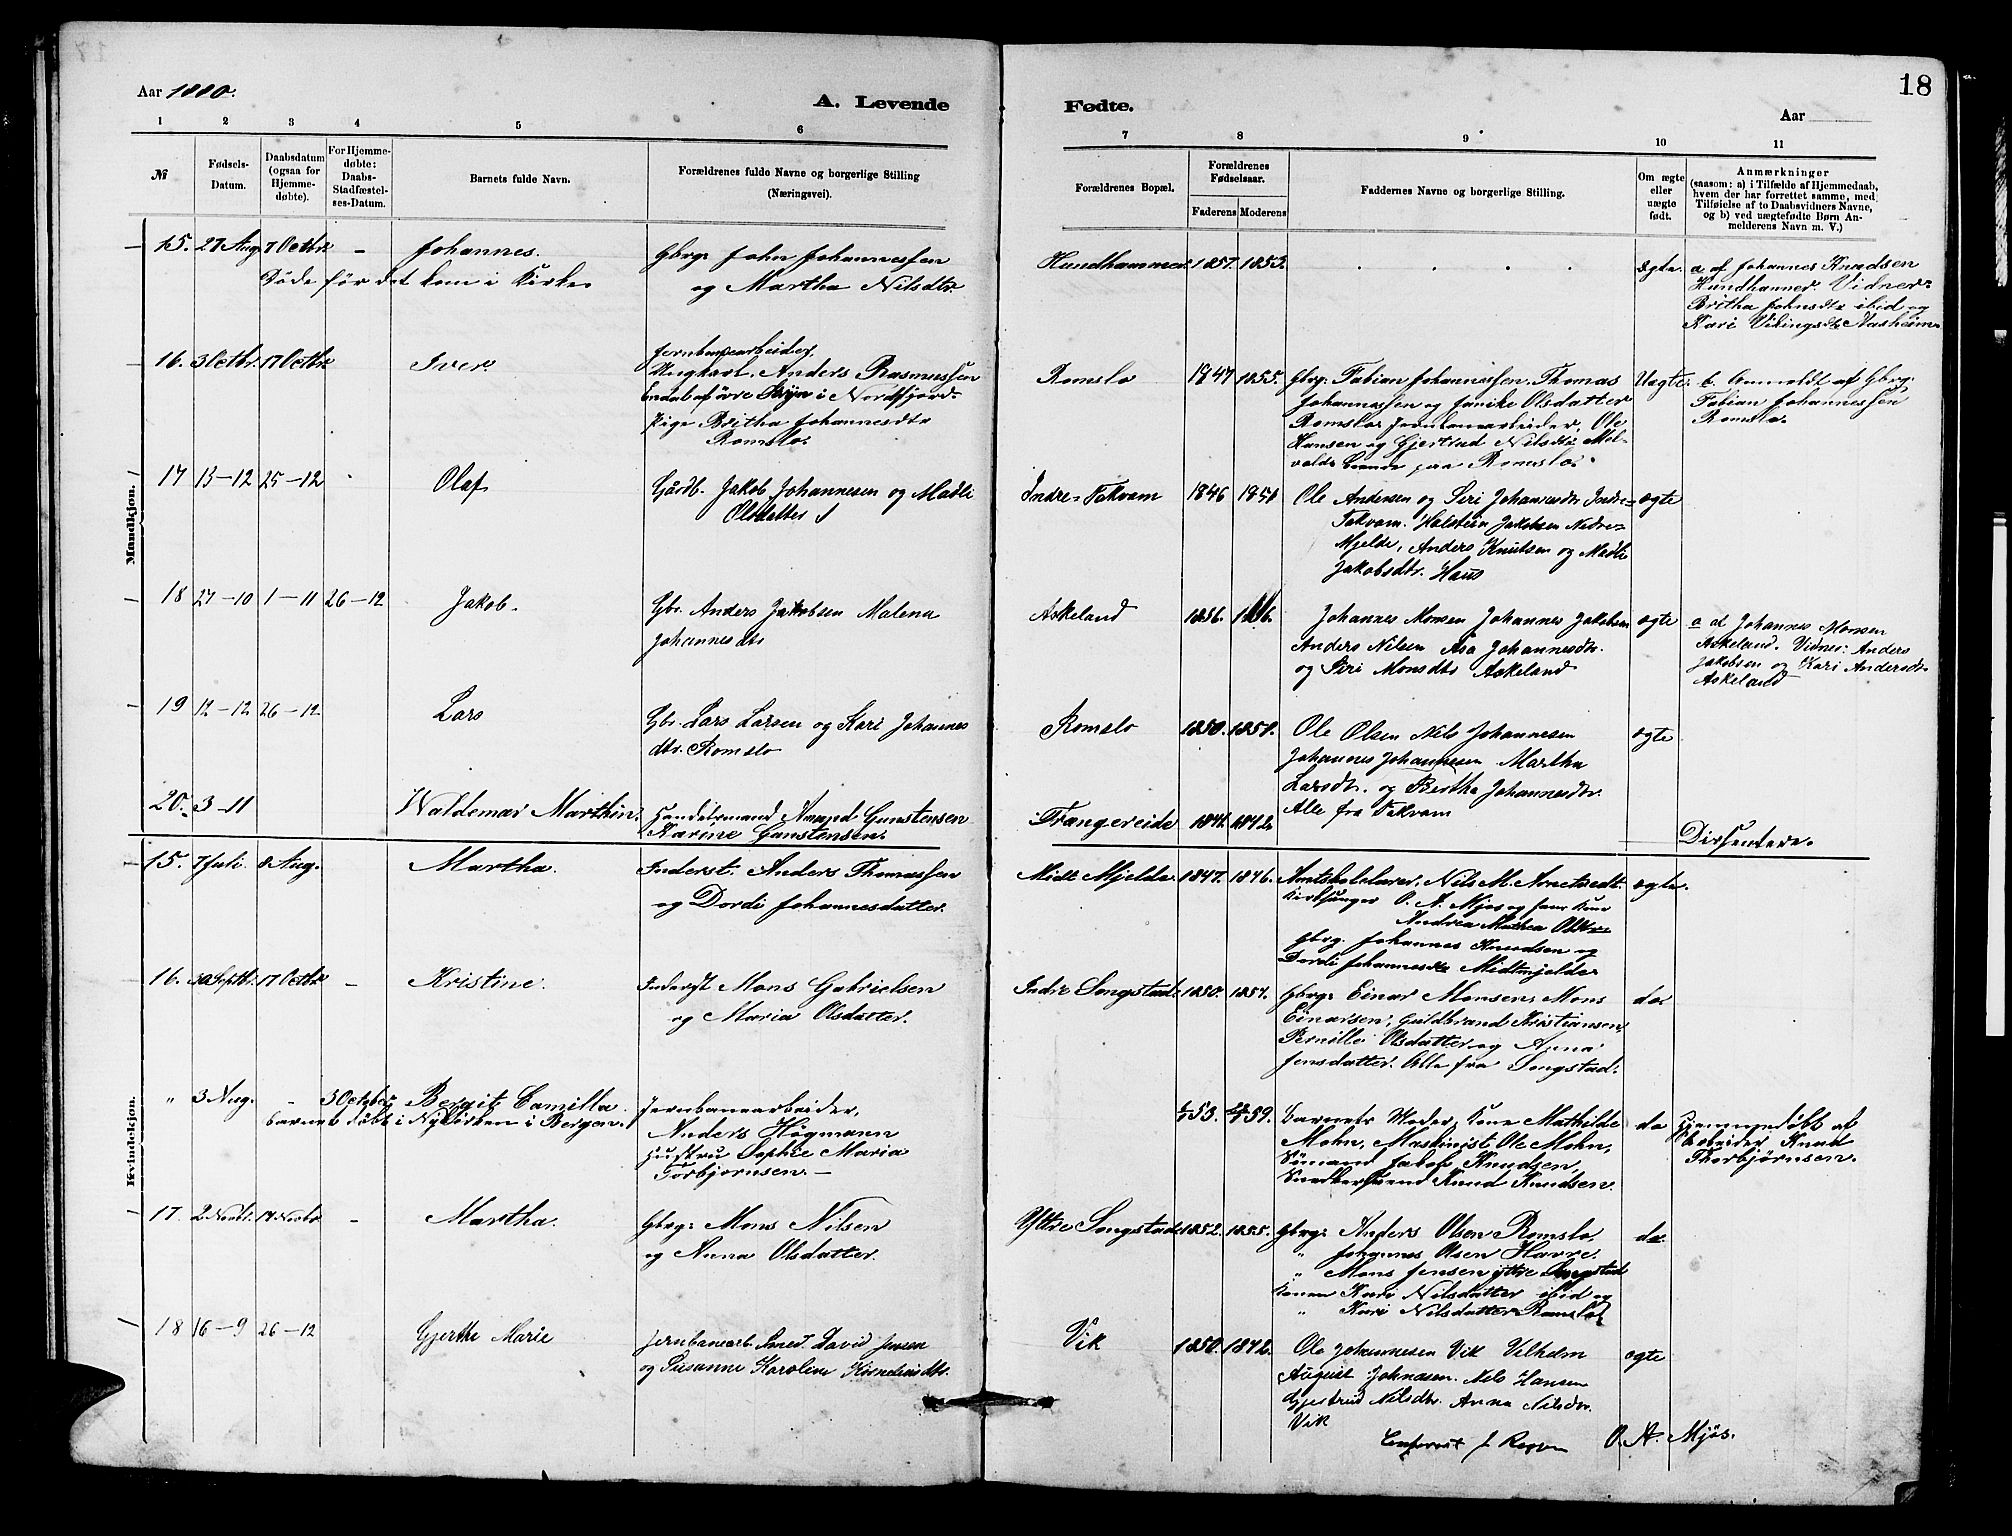 18
Aar 1880.
A. Levende
Fødte.
Aar
1 2 3 4 5 6
7 8 9 10 11
№
Fødsels-
Datum.
Daabsdatum
(ogsaa for
Hjemme-
døbte).
For Hjemme-
døbte:
Daabs-
Stadfæstel-
ses-Datum.
Barnets fulde Navn.
Forældrenes fulde Navne og borgerlige Stilling
(Næringsvei).
Forældrenes Bopæl.
Forældrenes
Fødselsaar.
Faderens Moderens
Faddernes Navne og borgerlige Stilling.
Om ægte
eller
uægte
født.
Anmærkninger
(saasom: a) i Tilfælde af Hjemmedaab,
hvem der har forrettet samme, med
Tilføielse af to Daabsvidners Navne,
og b) ved uægtefødte Børn An-
melderens Navn m. V.)
Mandkjøn.
15. 27 Aug. 7 Octbr. – Johannes.
Døde før det kom i Kirke.
Gbrg. John Johannessen
og Martha Nilsdtr.
Hundhammer. 1857. 1853. ægte.
a. af Johannes Knudsen
Hundhamner. Vidner:
Britha Johnsdtr ibid og
Kari Vikingsdtr Aasheim.
16. 3 Octbr. 17 Octbr. Iver.
Jernbanearbeider,
Ungkarl. Anders Rasmussen
i Nordfjord.
Pige Britha Johannesdtr
Romslo.
Romslo 1847 1855.
Gbrg. Fabian Johannessen. Thomas
Johannessen og Janike Olsdatter
Romslo. Jernbanearbeider, Ole
Hansen og Gjertrud Nilsdtr
paa Romslo.
Uægte.
b. Anmeldt af Gbrg.
Fabian Johannessen
Romslo.
17 13–12 25–12 Olaf
Gårdb. Jakob Johannesen og Madli
Olsdatter
Indre-Takvam 1846 1851
Ole Andersen og Siri Johannesdtr Indre-
Takvam. Halstein Jakobsen Nedre-
Mjelde, Anders Knutsen og Madli
Jakobsdtr. Haus
ægte
18 27–10 1–11 26–12 Jakob.
Gbr. Anders Jakobsen Malena
Johannesdtr
Askeland 1856.
Johannes Monsen Johannes Jakobsen
Anders Nilsen Åsa Johannesdtr.
og Siri Monsdtr Askeland
ægte
a af Johannes Monsen
Askeland. Vidner: Anders
Jakobsen og Kari Andersdtr.
Askeland
19 12–12 26–12 Lars
Gbr. Lars Larsen og Kari Johannes
dtr. Romslo
Romslo 1850. 1851.
Ole Olsen Nils Johannesen
Johannes Johannesen Martha
Larsdtr. og Bertha Johannesdtr.
Alle fra Takvam
ægte
20. 3–11 Waldemar Marthin.
Handelsmand Gunstensen
Karine Gunstensen.
Trangereide 1842.
Dissentere.
Kvindekjøn.
15. 7 Juli. 8 Aug. Martha.
Inderst. Anders Thomassen
og Dordi Johannesdatter.
Midt Mjelde. 1847. 1846.
Nils M. Arnetvedt.
Kirkesanger O. A. Mjøs og
Andrea Mathea
Gbrg. Johannes Knudsen og
Dordi Johannesdtr Midtmjelde.
ægte.
16. 30 Septbr. 17 Octbr. – Kristine.
Inderst Mons Gabrielsen
og Maria Olsdatter.
Indre Songstad. 1850. 1857.
Gbrg. Einar Monsen, Mons
Einarsen, Guldbrand Kristiansen,
Pernille Olsdatter og Anna
Jensdatter. Alle fra Songstad.
do.
" 3 Aug. – 3 October Bergit Camilla.
barnet døbt i Nykirken i Bergen.
Jernbanearbeider,
Anders Högmann
Hustru Sophie Maria
Torbjørnsen. –
53. 59.
Barnets Moder, Kone Mathilde
Mohn, Maskinist Ole Mohn,
Sömand Jakob Knudsen,
Snedkersvend Knud Knudsen.
do
Hjemmedöbt af
Arbeider Knud
Thorbjörnsen.
17. 2 Novbr. 14 Novbr. – Martha.
Gbrg. Mons Nilsen
og Anna Olsdatter.
Yttre Songstad 1852. 1855.
Gbrg. Anders Olsen Romslo
" Johannes Olsen Havre.
" Mons Jensen yttre Songstad
Konen Kari Nilsdatter ibid og
" Kari Nilsdatter Romslo
do.
18 16–9 26–12 Gjertke Marie
Jernbanearb. Smed. David Jensen
og Susanne Karoline Korneliusdtr.
Vik 1850. 1842.
Ole Johannesen Vik Vilhelm
August Johnasen. Nils Hansen
Gjertrud Nilsdtr. Anna Nilsdtr.
Vik
ægte
Confereret J.
O. A. Mjøs.